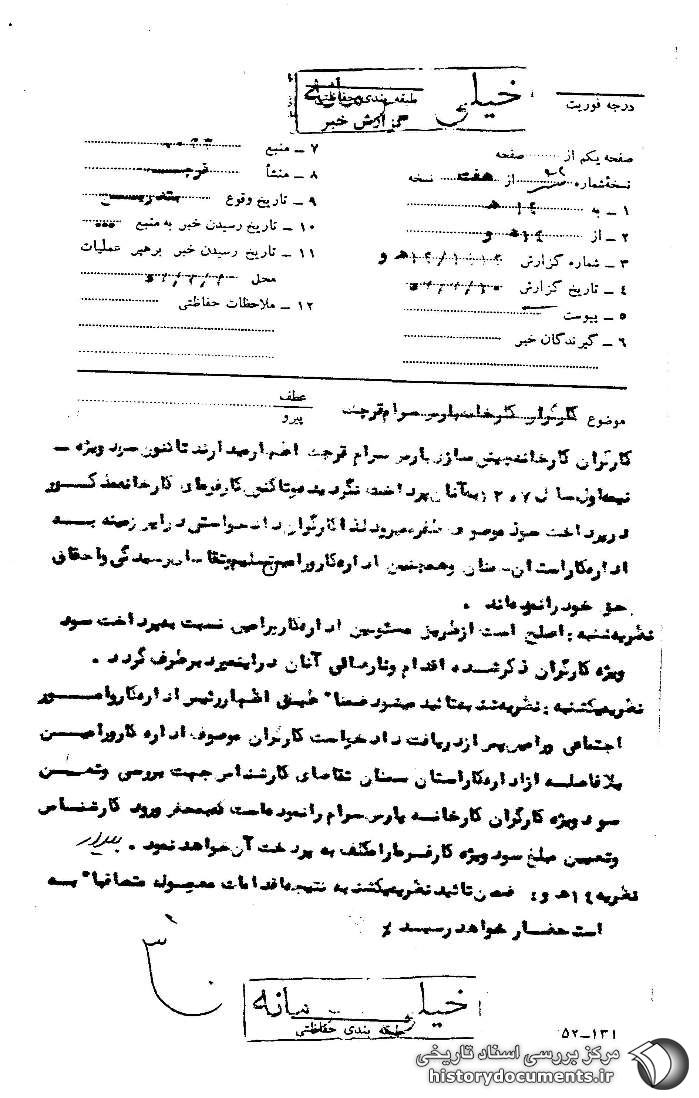 خیلی
طبقه بندی حفاظتی
گزارش خبر
درجه فوریت
صفحه یکم از صفحه
نسخه شماره از هفت نسخه
۱ ـ به ۱٤ هـ
۲ ـ از ۱٤ هـ و
۳ ـ شماره گزارش هـ و
٤ ـ تاریخ گزارش
٥ ـ پیوست
٦ ـ گیرندگان خبر
۷ ـ منبع
۸ ـ منشأ
۹ ـ تاریخ وقوع
۱۰ ـ تاریخ رسیدن خبر به منبع
۱۱ ـ تاریخ رسیدن خبر برهبر عملیات
محل
۱۲ ـ ملاحظات حفاظتی
موضوع کارگران کارخانه پارس سرام قرچک
عطف
پیرو
کارگران کارخانه پارس سرام قرچک اظهار میدارند تاکنون سود ویژه ـ
نیمه اول سال به آنان پرداخت نگردیده و تاکنون کارفرمای کارخانه مذکور
در پرداخت سود موصوف طفره میرود لذا کارگران دادخواستی در این زمینه به
اداره کار استان سمنان و همچنین اداره کار ورامین تسلیم و تقاضای رسیدگی و احقاق
حق خود را نموده اند .
نظریه شنبه : اصلح است از طریق مسئولین اداره کار ورامین نسبت به پرداخت سود
ویژه کارگران ذکر شده اقدام و نارضائی آنان در اینمورد برطرف گردد .
نظریه یکشنبه : نظریه شنبه تائید میشود ضمنا" طبق اظهار رئیس اداره کار و امور
اجتماعی ورامین پس از دریافت دادخواست کارگران موصوف اداره کار ورامین
بلافاصله از اداره کار استان سمنان تقاضای کارشناس جهت بررسی و تعیین
سود ویژه کارگران کارخانه پارس سرام را نموده است که بمحض ورود کارشناس
و تعیین مبلغ سود ویژه کارفرما را مکلف به پرداخت آن خواهد نمود .
نظریه ۱٤ هـ و : ضمن تائید نظریه یکشنبه نتیجه اقدامات معموله متعاقبا" به
استحضار خواهد رسید
خیلی
طبقه بندی حفاظتی
۱۳۱ـ۵۲
مرکز بررسی اسناد تاریخی
historydocuments.ir